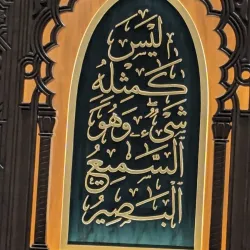 ليس
كمثله
شيء وهو
السميع
البصير